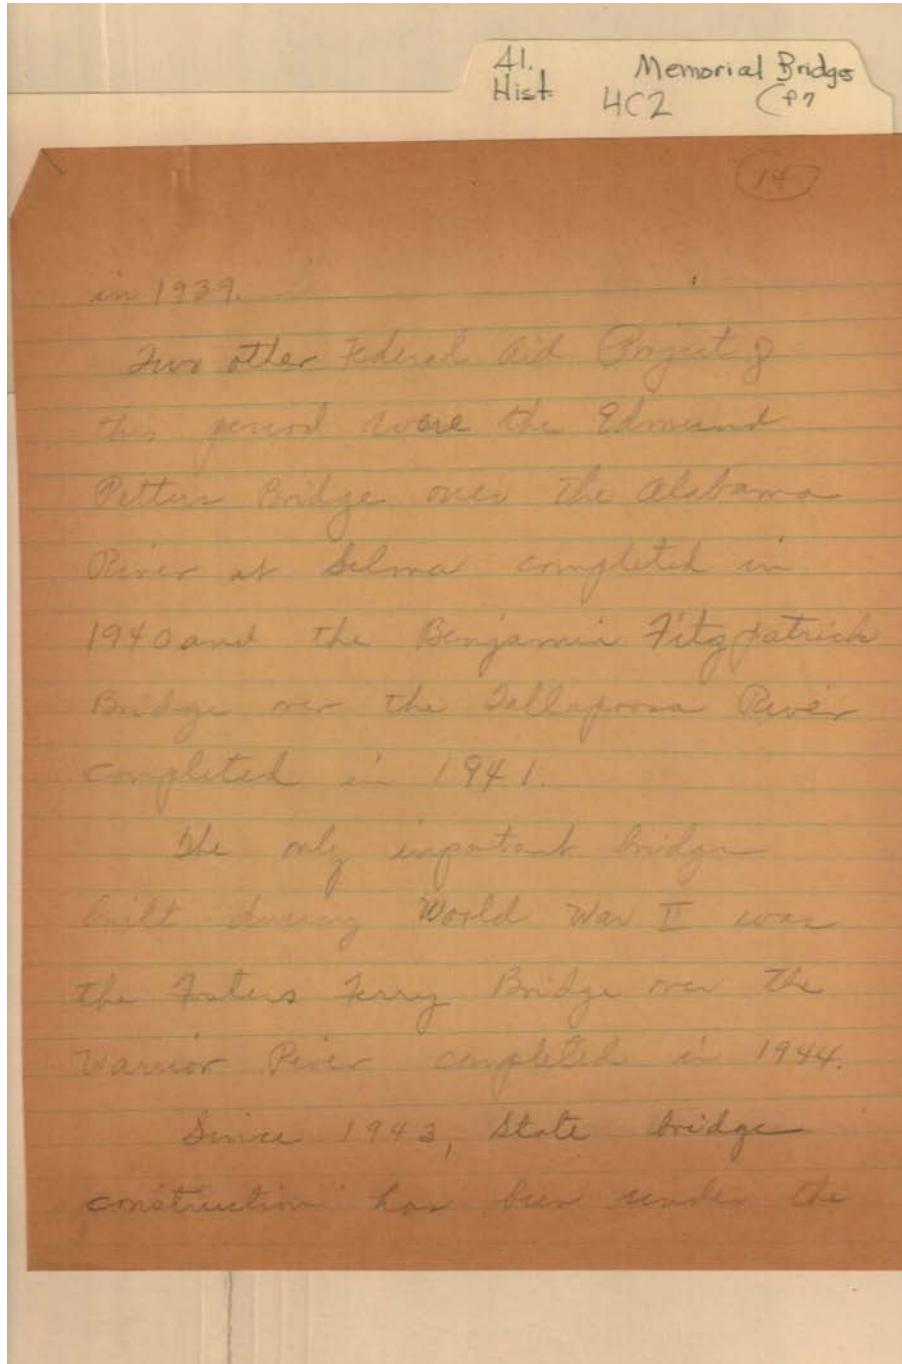 41. Memorial Bridges
Hist. 4C2 (P7
14
in 1939.
Two other Federal Aid Project of
this period were the Edmund
Pettus Bridge over the Alabama
River at Selma completed in
1940 and the Benjamin Fitzpatrick
Bridge over the Tallapoosa River
completed in 1941.
The only important bridge
built during World War II was
the Fosters Ferry Bridge over the
Warrior River completed in 1944.
Since 1943, State bridge
construction has been under the